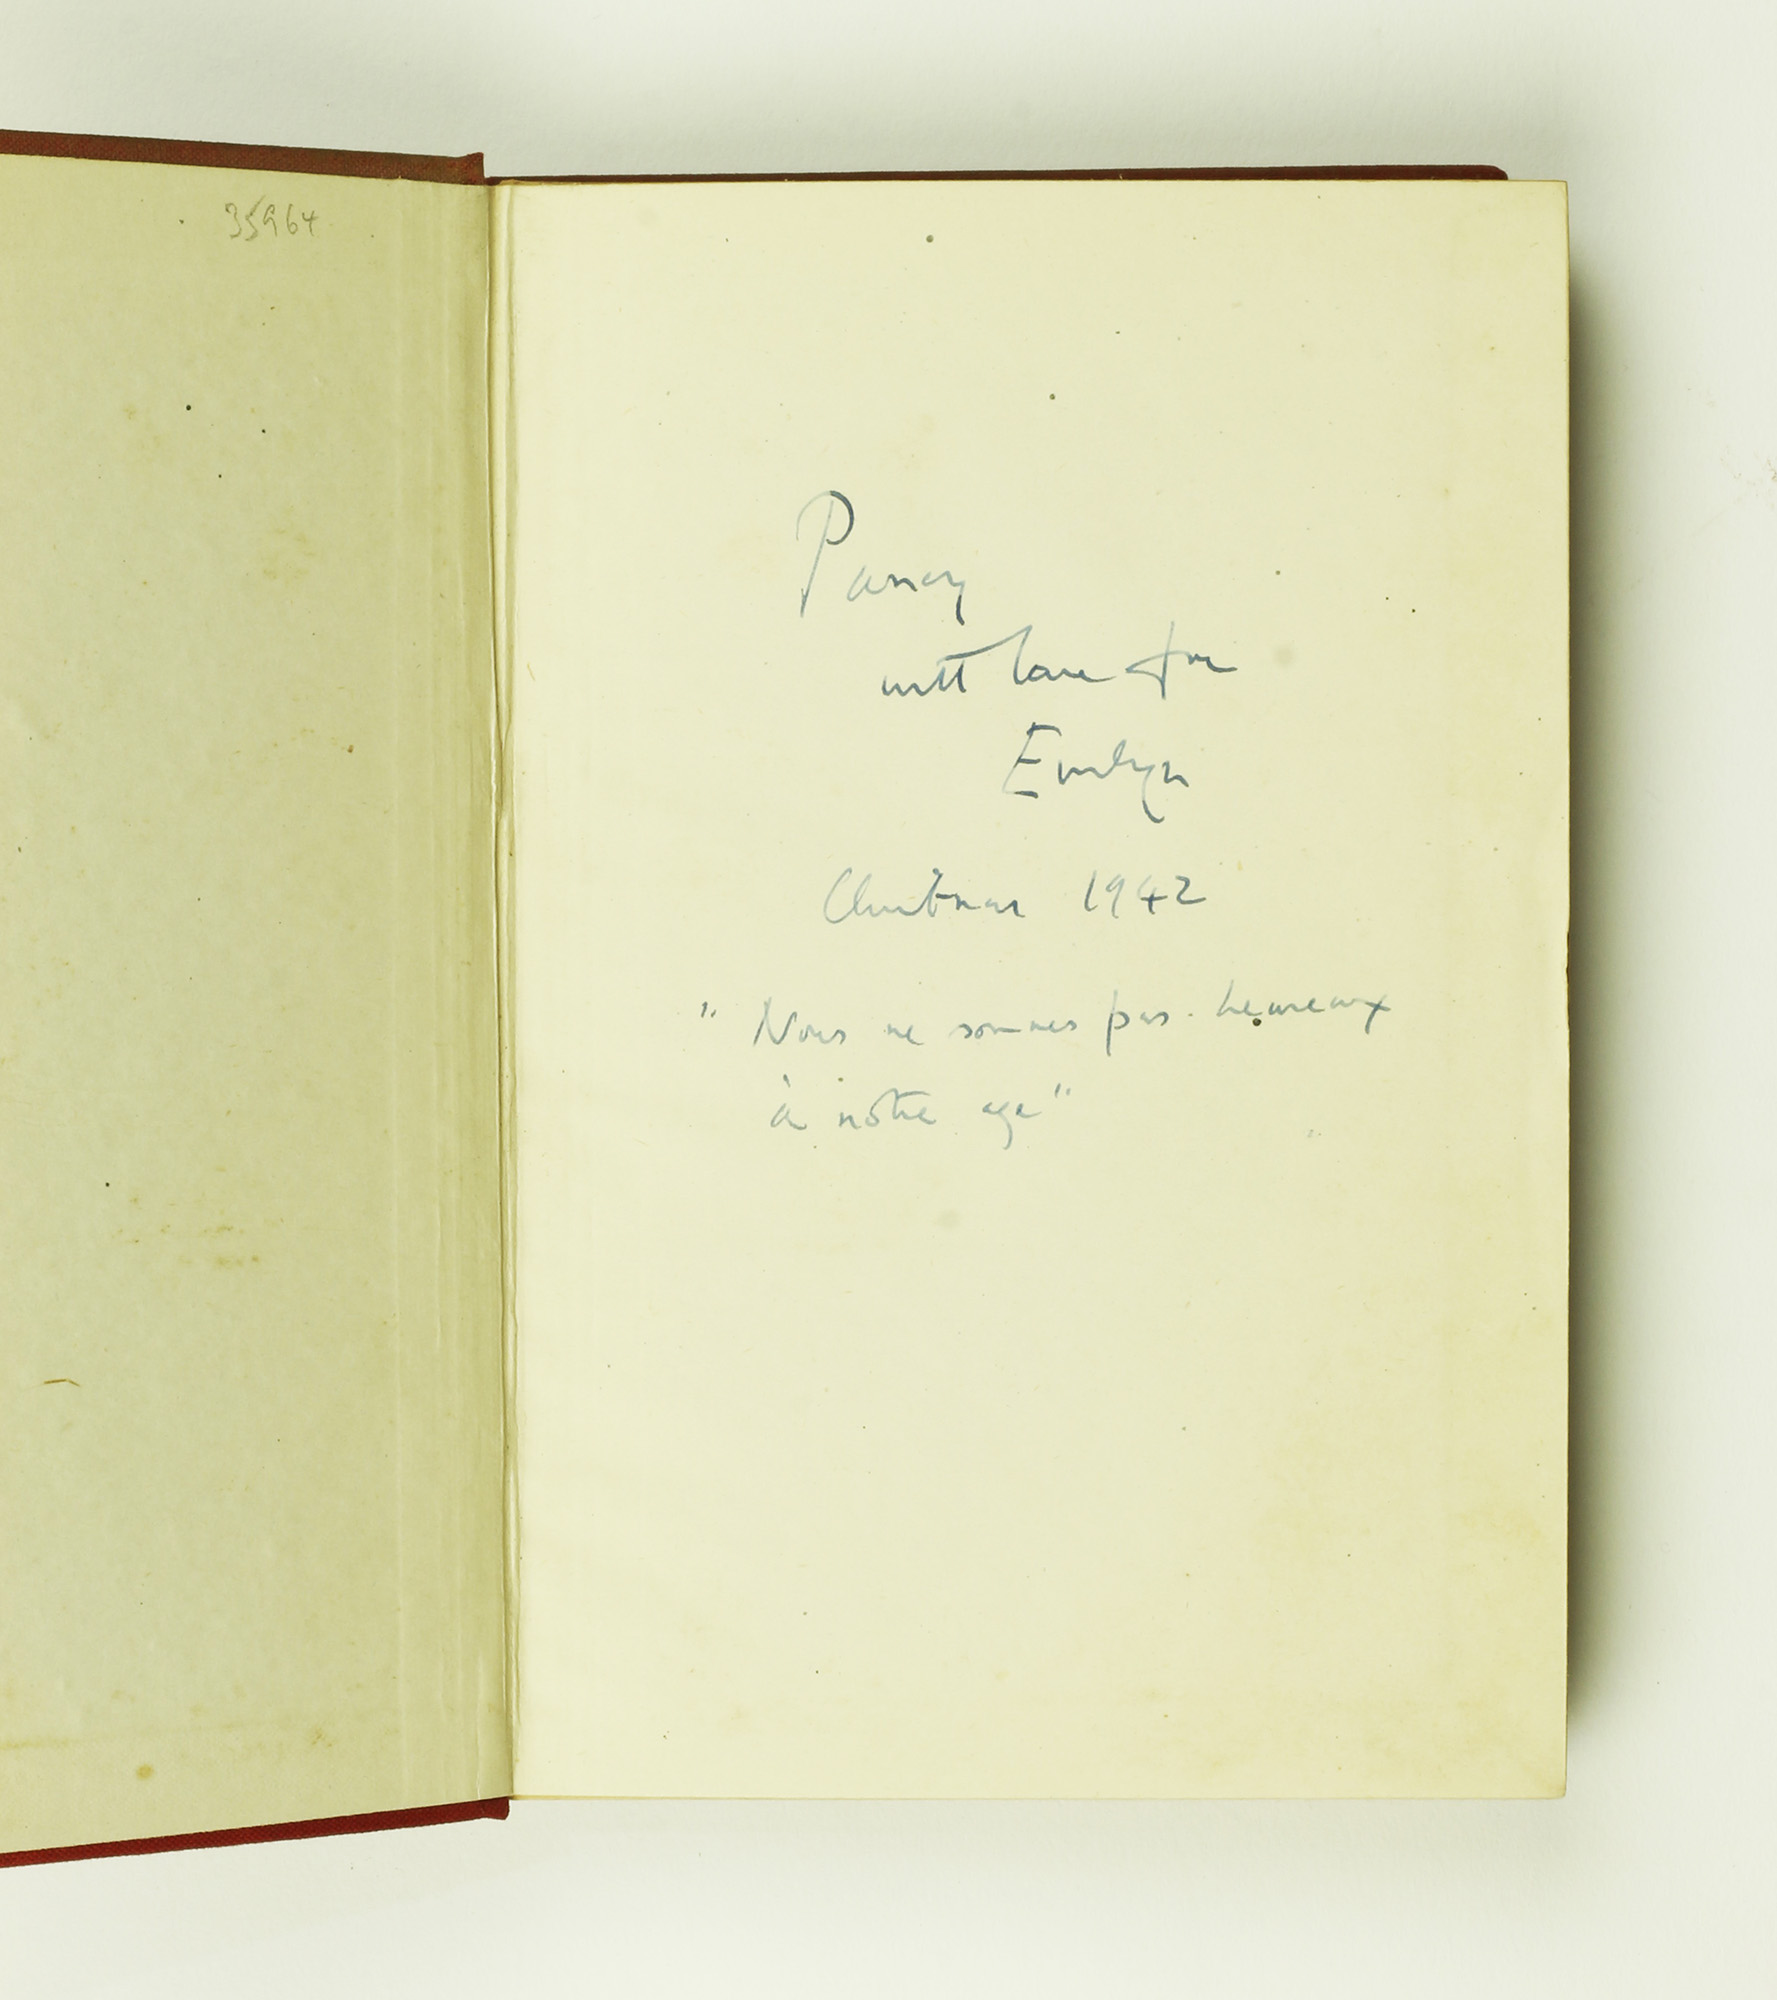 35964
Pansy
with love from
Evelyn
Christmas 1942
" Nous ne sommes pas heureux
à notre age "